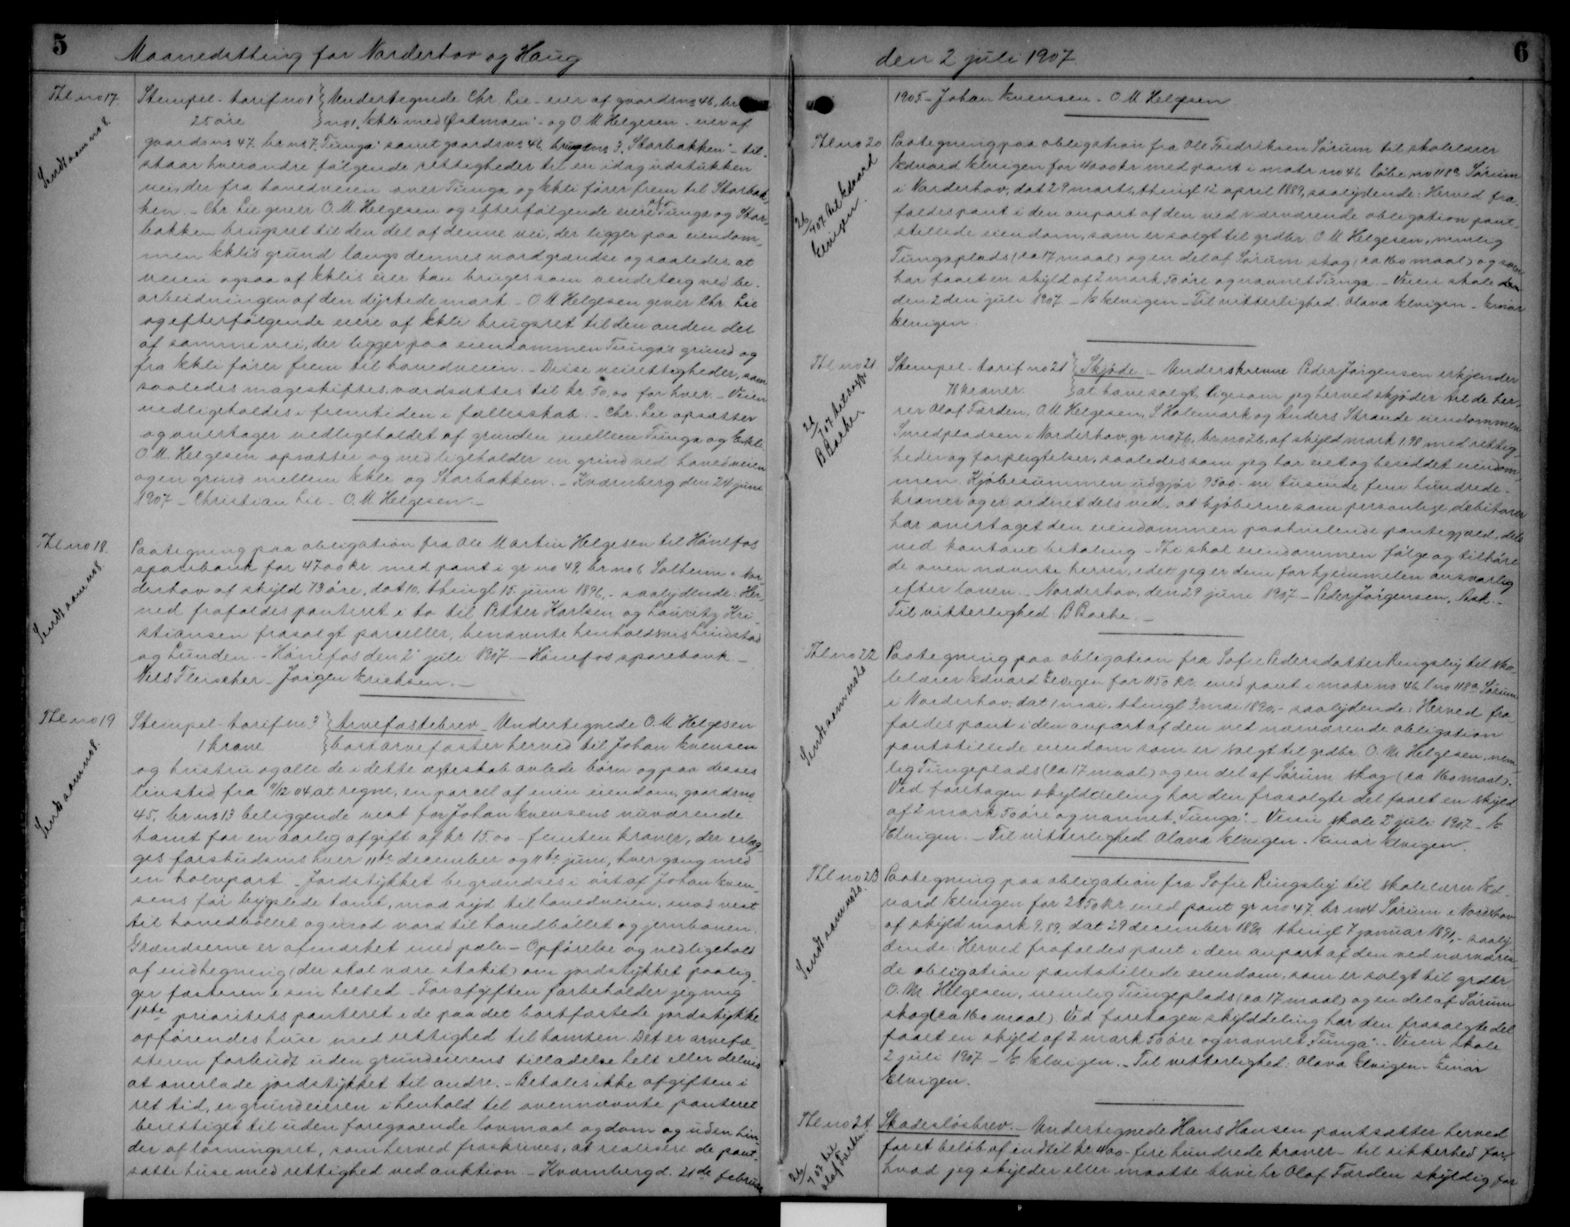 5 Maanedstting for Norderhov og Haug
Thl no 17. Stempel-tarif no 1 Undertegnede Chr. Lie - eier af gaardsno 46, br
25 øre no 1, Ekli med Østmoen - og O M Helgesen - eier af
Sendt som no 8.
gaardsno 47. br no 7. Tunga samt gaardsno 46 brugsno 3, Skarbakken - til-
staar hverandre følgende rettigheder til en idag udstukken
vei, der fra hovedveien over Tunga og Ekli fører frem til Skarbak-
ken. - Chr Lie giver O. M Helgesen og efterfølgende eiere af Tunga og Skar-
bakken brugsret til den del af denne vei, der ligger paa eiendom-
men Eklis grund langs dennes nordgrændse og saaledes at
veien ogsaa af Eklis eier kan bruges som vendeteig ved be-
arbeidningen af den dyrkede mark. - O M Helgesen giver Chr. Lie
og efterfølgende eiere af Ekli brugsret til den anden del
af samme vei, der ligger paa eiendommen Tunga's grund og
fra Ekli fører frem til hovedveien. - Disse veirettigheder, som
saaledes mageskiftes værdsættes til kr. 50,00 for hver. - Veien
vedligeholdes i fremtiden i fællesskab. - Chr. Lie opsætter
og overtager vedligeholdet af grinden mellem Tunga og Ekli
O. M. Helgesen opsætter og vedligeholder en grind ved hovedveien
og en grind mellem Ekli og Skarbakken. - Kværnberg den 24 juni
1907 - Christian Lie - O. M Helgesen -
Thl no 18. Paategning paa obligation fra Ole Martin Helgesen til Hønefos
Sendt som no 8.
sparebank for 4700 kr. med pant i gr no 49, br no 6 Solheim i Nor-
derhov af skyld 73 øre, dat 10, thingl 15. juni 1896, - saalydende: Her-
ved frafaldes panteret i to til Petter Karlsen og Lauritz Kri-
stiansen frasolgt parceller, benævnte henholdsvis Lindstad
og Lunden. - Hønefos den 2 juli 1907. - Hønefos sparebank -
Niels Fleischer - Jørgen Erichsen. -
Thl no 19 Stempel-tarif no. 3 Arvefæstebrev. Undertegnede O. M Helgesen
1 krone bortarvefæster herved til Johan Evensen
Sendt som no 8.
og hustru og alle de i dette ægteskab avlede børn og paa disses
livstid fra 11/12 04 at regne, en parcel af min eiendom, gaardsno
45, br no 13 beliggende vest for Johan Evensens nuværende
tomt for en aarlig afgift af kr. 15.00 - femten kroner, der erlæg-
ges forskudsvis hver 11te december og 11te juni, hver gang med
en halvpart. - Jordstykket begrændses i øst af Johan Even-
sens før bygslede tomt, mod syd til hovedveien, mod vest
til hovedbøllet og mod nord til hovedbøllet og jernbanen.
Grændserne er afmerket med pæle. - Opførelse og vedligehold
af indhegning (der skal være stakit) om jordstykket paalig-
ger fæsteren i sin helhed. - For afgiften forbeholder jeg mig
1ste prioritets panteret i de paa det bortfæstede jordstykke
opførendes huse med rettighed til tomten. Det er arvefæ-
steren forbudt uden grundeierens tilladelse helt eller delvis
at overlade jordstykket til andre. - Betales ikke afgiften i
ret tid, er grundeieren i henhold til ovennævnte panteret
berettiget til uden foregaaende lovmaal og dom og uden hin-
der af løsningsret, som herved fraskrives, at realisere de pant-
satte huse med rettighed ved auktion. - Kværnberg d. 21de februar
den 2 juli 1907 6
1905 - Johan Evensen - O M Helgesen
Thl no 20 Paategning paa obligation fra Ole Fredriksen Sørum til skolelærer
Edvard Elvigen for 4000 kr med pant i matr no 46 løbe no 118a Sørum
i Norderhov, dat 29 marts, thingl 12 april 1889, saalydende: Herved fra-
faldes pant i den anpart af den ved nærværende obligation pant-
stillede eiendom, som er solgt til grdbr. O. M Helgesen, nemlig
Tungaplads (ca 17 maal) og en del af Sørum skog (ca 160 maal) og som
har faaet en skyld af 2 mark 50 øre og navnet Tunga. - Veien skole den
den 2den juli 1907 - E Elvigen - Til vitterlighed. Olava Elvigen - Einar
Elvigen.
26/7 07 til Edvard Elvigen.
Thl no 21 Stempel-tarif no 21 Skjøde. - Underskrevne Peder Jørgensen erkjender
78 kroner at have solgt, ligesom jeg herved skjøder til de her-
26/7 07 B Bache.
rer Olaf Farden, O. M Helgesen, S Holemark og Anders Strande eiendommen
Smedpladsen i Norderhov, gr no 76, br. no 26, af skyld mark 1,98 med rettig-
heder og forpligtelser, saaledes som jeg har eiet og besiddet eiendom-
men. Kjøbesummen udgjør 9500 - ni tusinde fem hundrede -
kroner og er ordnet dels ved, at kjøberne som personlige debitorer
har overtaget den eiendommen paahvilende pantegjæld, dels
ved kontant betaling. - Thi skal eiendommen følge og tilhøre
de oven nævnte herrer, idet jeg er dem for hjemmelen ansvarlig
efter loven. - Norderhov, den 29 juni 1907 - Peder Jørgensen, Ask. -
Til vitterlighed B Bache. -
Thl no 22 Paategning paa obligation fra Sofie Pedersdatter Ringsby til sko-
Sendt som no 20
lelærer Edvard Elvigen for 1150 kr. med pant i matr no 46 l no 118a Sørum
i Norderhov, dat 1 mai, thingl 3 mai 1890, - saalydende: Herved fra-
faldes pant i den anpart af den ved nærværende obligation
pantstillede eiendom som er solgt til grdbr. O. M. Helgesen, nem-
lig Tungeplads (ca 17 maal) og en del af Sørum skog (ca 160 maal).
Ved foretagen skylddeling har den frasolgte del faaet en skyld
af 2 mark 50 øre og navnet Tunga". - Veien skole 2 juli 1907 - E
Elvigen. - Til vitterlighed Olava Elvigen. Einar Elvigen.
Thl no 23 Paategning paa obligation fra Sofie Ringsby til skolelærer Ed-
Sendt som no 20.
vard Elvigen for 2850 kr. med pant gr no 47. br no 4 Sørum i Norderhov
af skyld mark 9.89, dat 29 december 1890 thingl 7 januar 1891, - saaly-
dende: Herved frafaldes pant i den anpart af den ved nærværen-
de obligation pantstillede eiendom, som er solgt til grdbr
O. M. Helgesen, nemlig Tungeplads (ca 17 maal) og en del af Sørum
skog (ca 160 maal) Ved foretagen skylddeling har den frasolgte del
faaet en skyld af 2 mark 50 øre og navnet Tunga". - Veien skole
2 juli 1907 - E Elvigen. - Til vitterlighed: Olava Elvigen - Einar
Elvigen.
Thl no 24 Skadesløsbrev. - Undertegnede Hans Hansen pantsætter herved
26/7 07 til Olaf Farden
for et beløb af indtil kr 400 - fire hundrede kroner - til sikkerhed for
hvad jeg skylder eller maatte blive hr Olaf Farden skyldig for